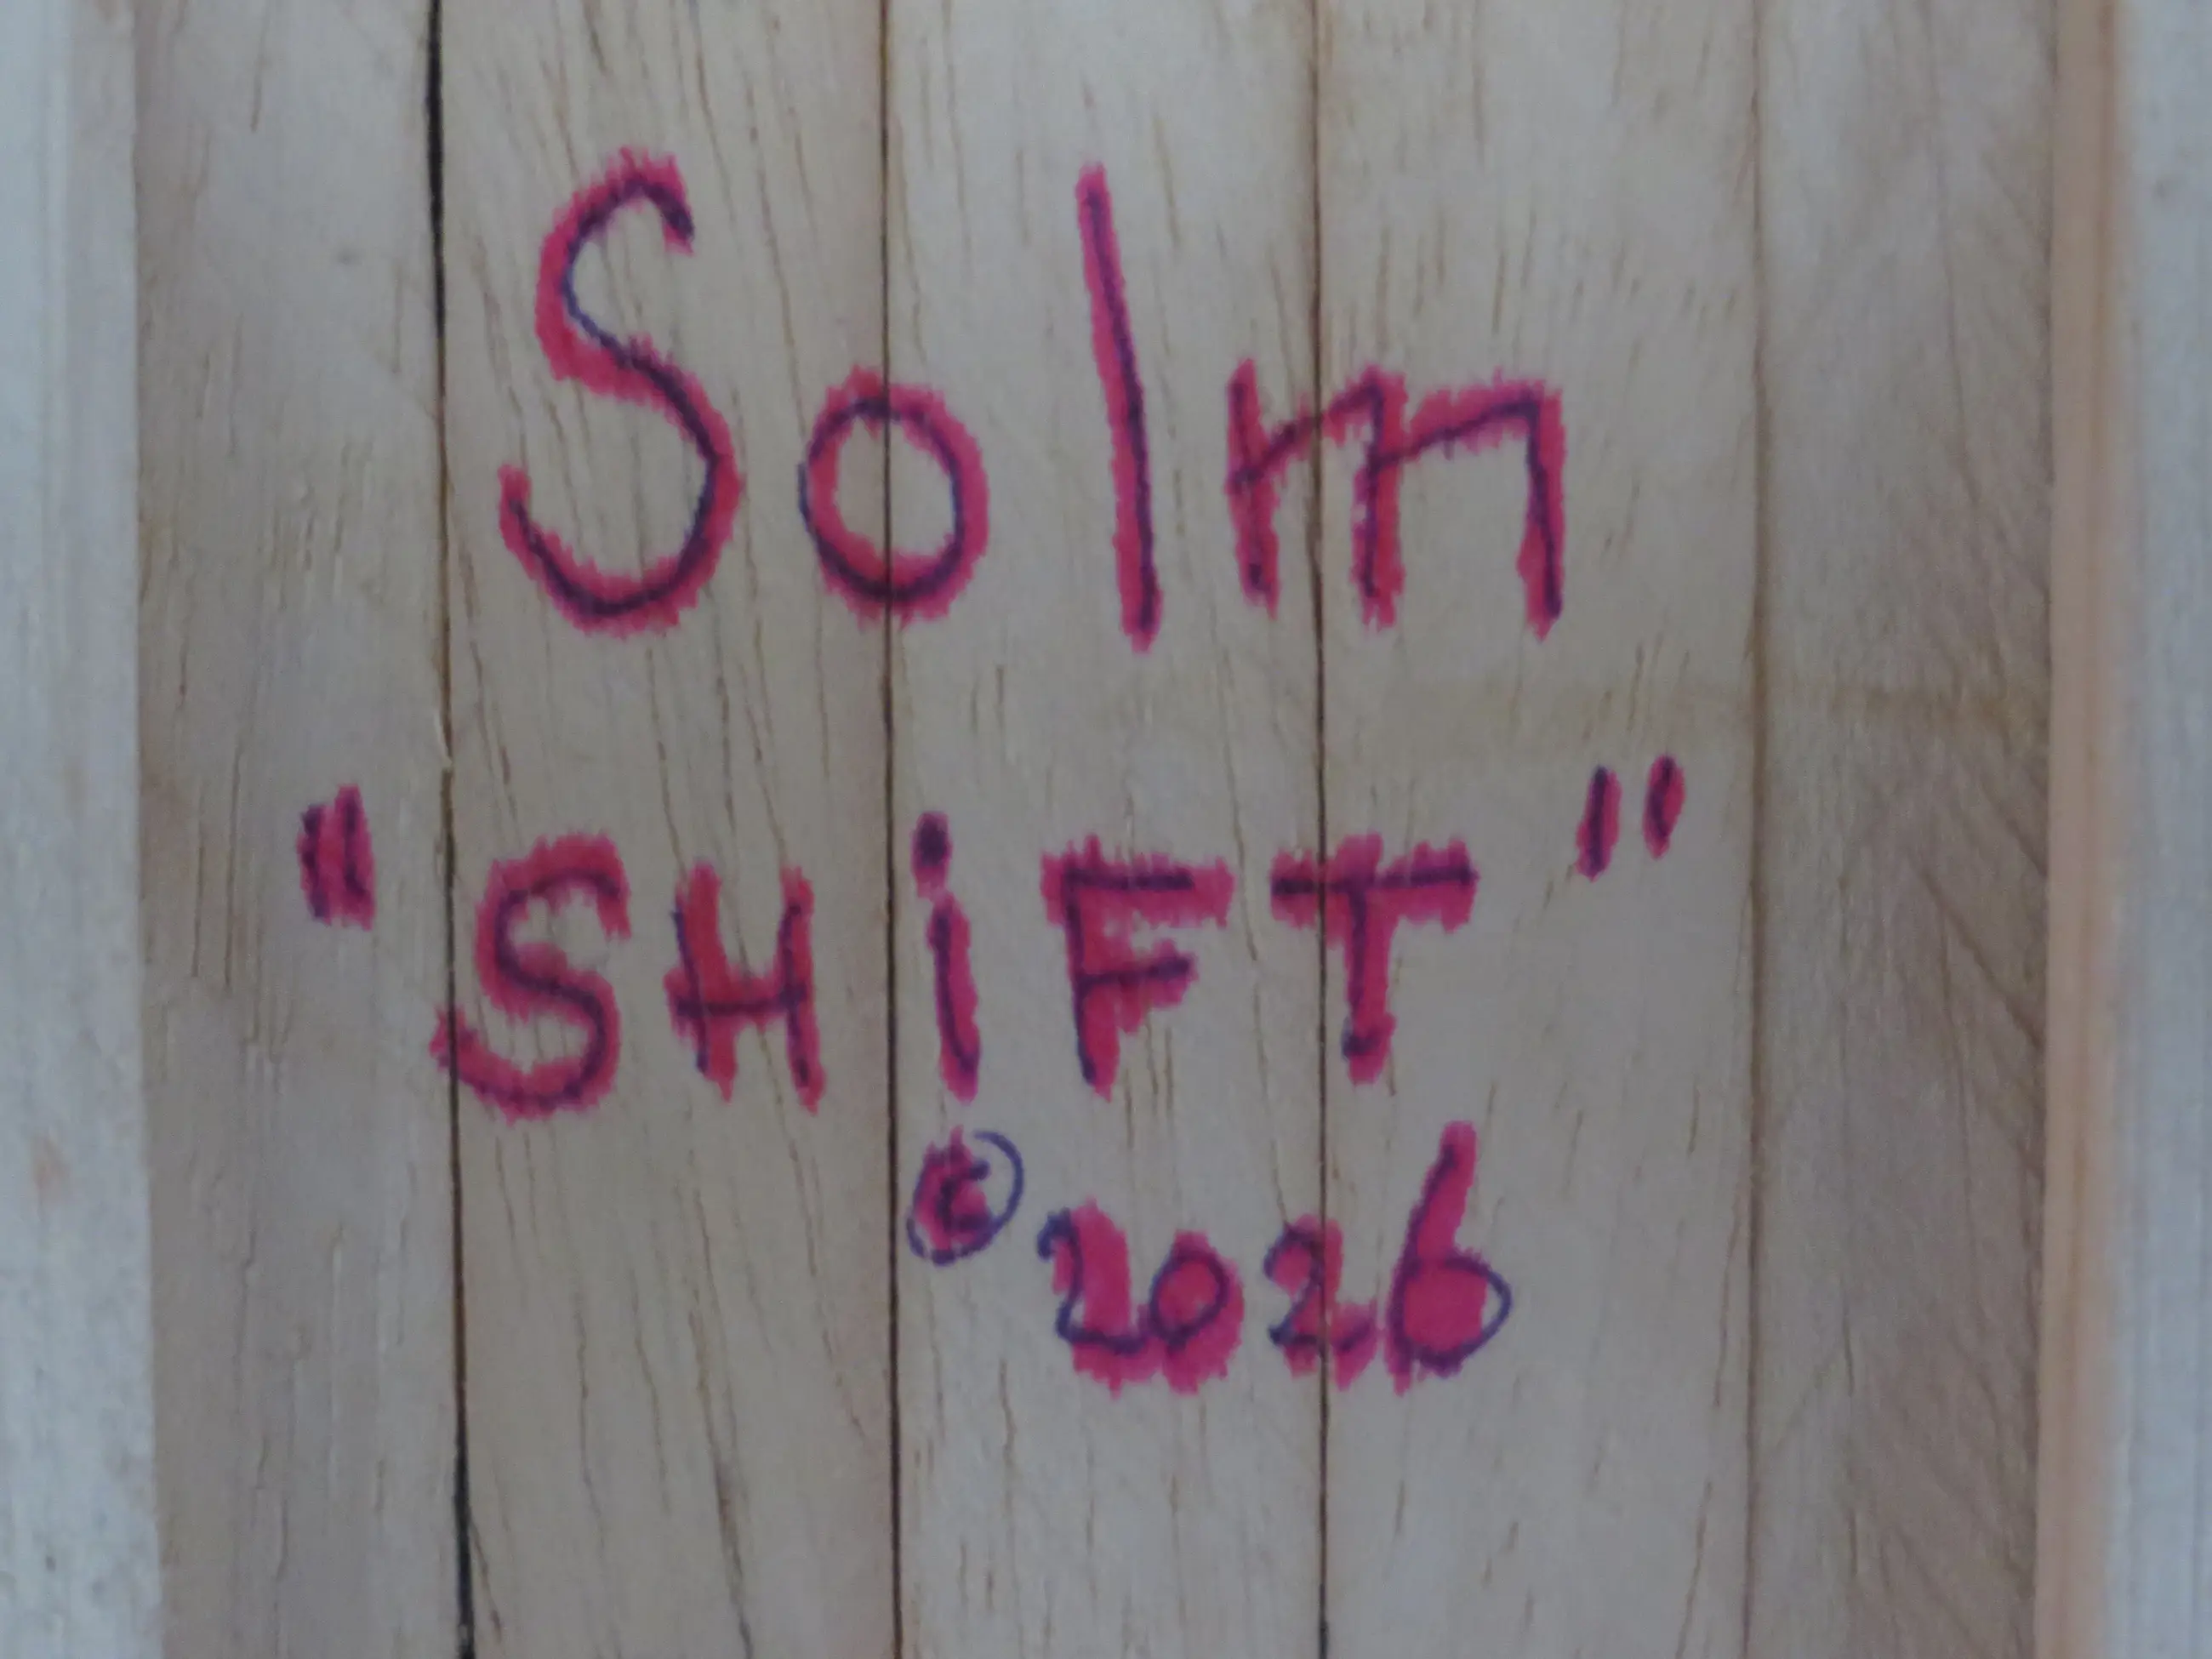 Solm
"SHiFT"
© 2026